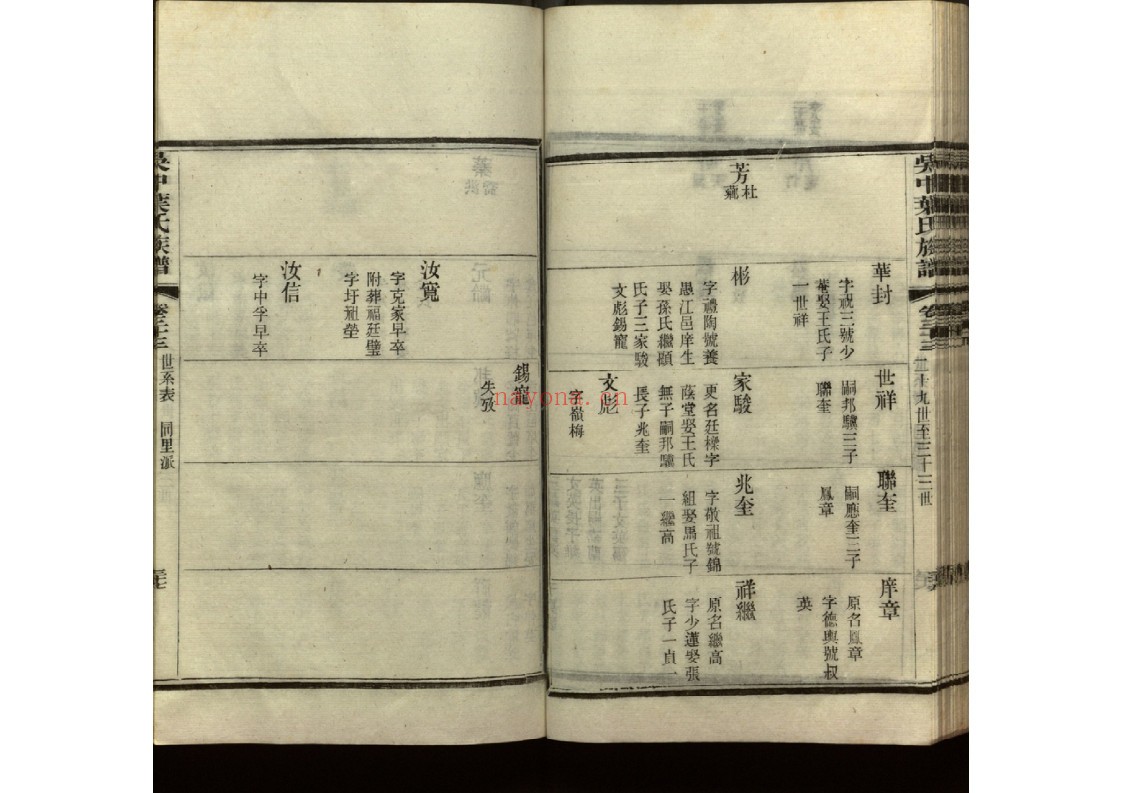 吳中葉氏族譜
卷三三
二十九世至三十三世
華封
字祝三號少
菴娶王氏子
一世祥
世祥
嗣邦驥三子
聯奎
聯奎
嗣應奎三子
鳳章
庠章
原名鳳章
字德輿號叔
英
芳
杜
彬
字禮陶號養
愚江邑庠生
娶孫氏繼顧
氏子三家駿
文彪錫寵
家駿
更名廷樑字
蔭堂娶王氏
無子嗣邦驥
長子兆奎
兆奎
字敬祖號錦
組娶馬氏子
一繼高
祥繼
原名繼高
字少蓮娶張
氏子一貞一
文彪
字嶺梅
錫寵
失攷
汝寬
字克家早卒
附葬福廷璧
字圩祖塋
汝信
字中孚早卒
吳中葉氏族譜
卷三三
世系表
同里派
nayona.cn